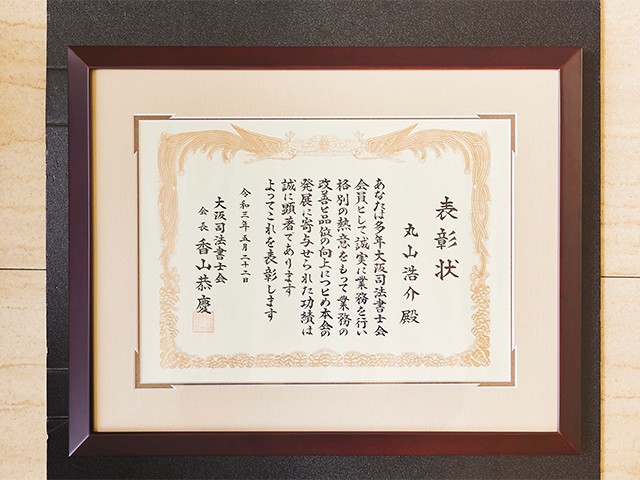 表彰状
丸山浩介殿
あなたは多年大阪司法書士会
会員として誠実に業務を行い
格別の熱意をもって業務の
改善と品位の向上につとめ本会の
発展に寄与せられた功績は
誠に顕著であります
よってこれを表彰します
令和三年五月二十二日
大阪司法書士会
会長 香山恭慶